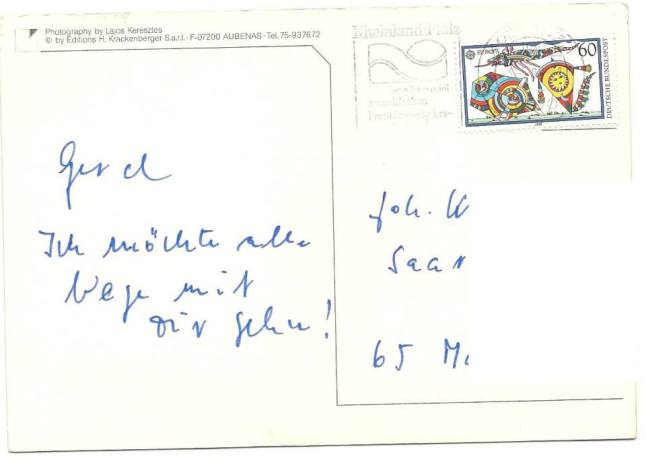 Photography by Lajos Keresztes
© by Editions H. Krackenberger S.a.r.l. · F-07200 AUBENAS · Tel. 75-937672
Rheinland-Pfalz
EUROPA
60
DEUTSCHE BUNDESPOST
Ich möchte alle
Wege mit
Dir gehen!
Joh. W
Saar
65 M